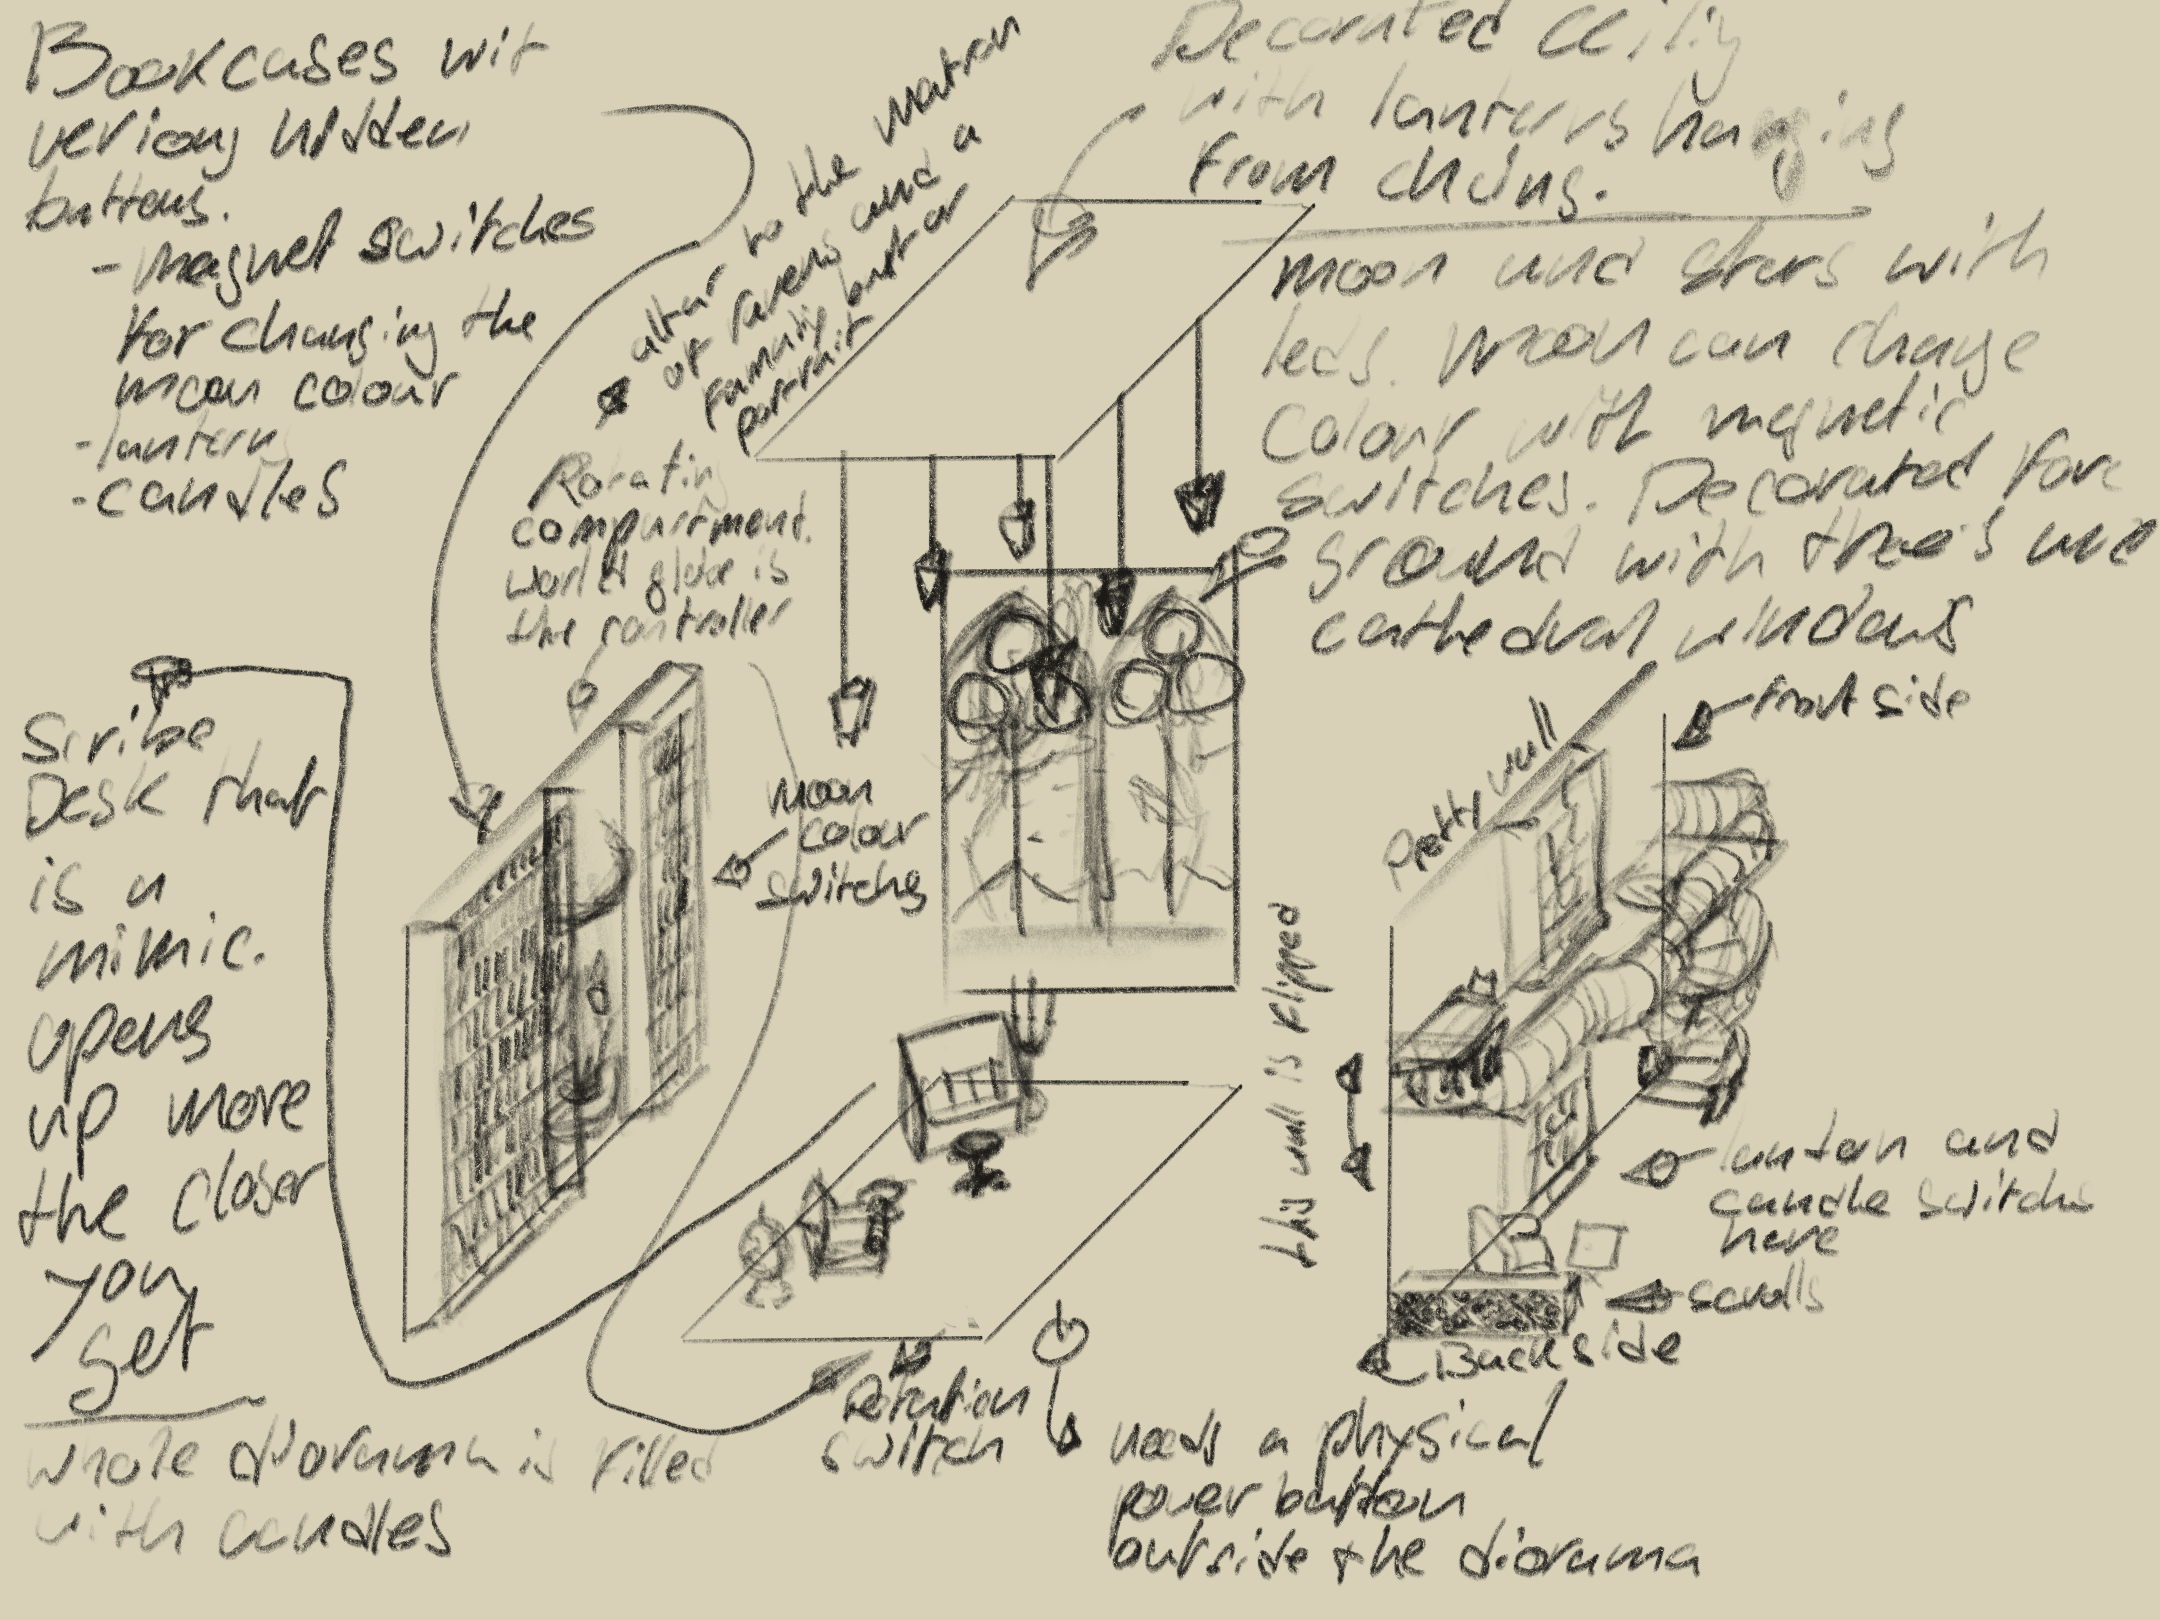 Bookcases wit
verious hidden
buttons.
- magnet switches
for changing the
moon colour
- lanterns
- candles
altar to the matron
of ravens and a
family bust or
portrait
Decorated ceilig
with lanterns hanging
from chains.
moon and stars with
leds. Moon can change
colour with magnetic
switches. Decorated fore
ground with thee's and
cathedral windows
Rotating
compartment.
world globe is
the controller
Scribe
Desk that
is a
mimic.
opens
up more
the closer
you
get
moon
colour
switches
Pretty wall
front side
this wall is flipped
lantern and
candle switches
here
scrolls
Back side
Rotation
switch
whole diorama is filled
with candles
needs a physical
power button
outside the diorama